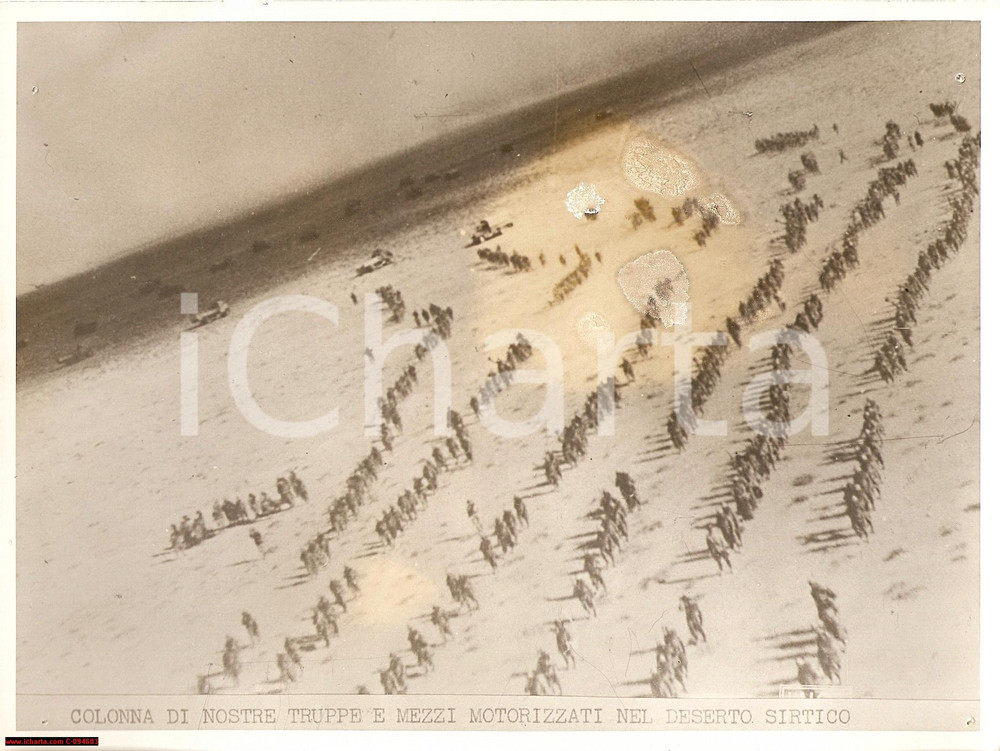 iCharta
COLONNA DI NOSTRE TRUPPE E MEZZI MOTORIZZATI NEL DESERTO SIRTICO
www.icharta.com C-094603